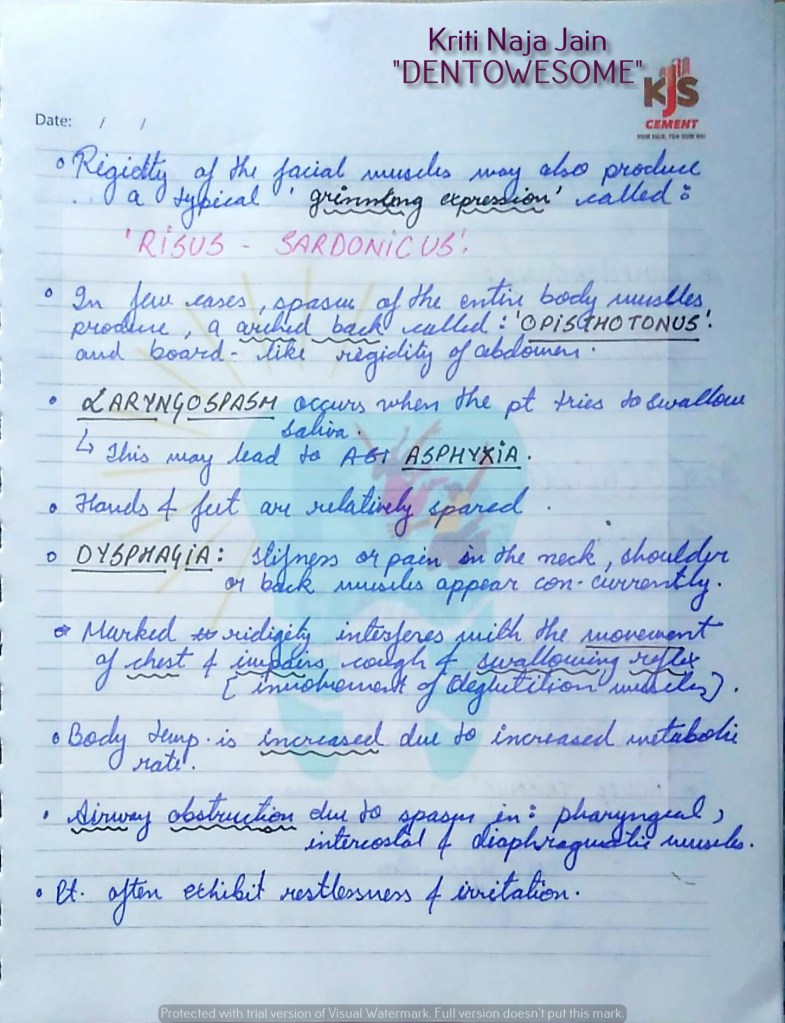 Kriti Naja Jain
"DENTOWESOME"
KJS
CEMENT
Date: / /
Rigidity of the facial muscles may also produce
a typical 'grinnting expression' called:
'RISUS - SARDONICUS'.
In few cases, spasm of the entire body muslles
produce, a arched back called: 'OPISTHOTONUS'.
and board-like rigidity of abdomen.
LARYNGOSPASM occurs when the pt tries to swallow
saliva.
↳ This may lead to ASPHYXIA.
Hands & feet are relatively spared.
DYSPHAGIA: stifness or pain in the neck, shoulder
or back muscles appear con-currently.
Marked ridigity interferes with the movement
of chest & impairs cough & swallowing reflex
[involvement of deglutition muscles].
Body temp. is increased due to increased metabolic
rate.
Airway obstruction due to spasm in: pharyngeal,
intercostal & diaphragmatic muscles.
Pt. often exhibit restlessness & irritation.
Protected with trial version of Visual Watermark. Full version doesn't put this mark.